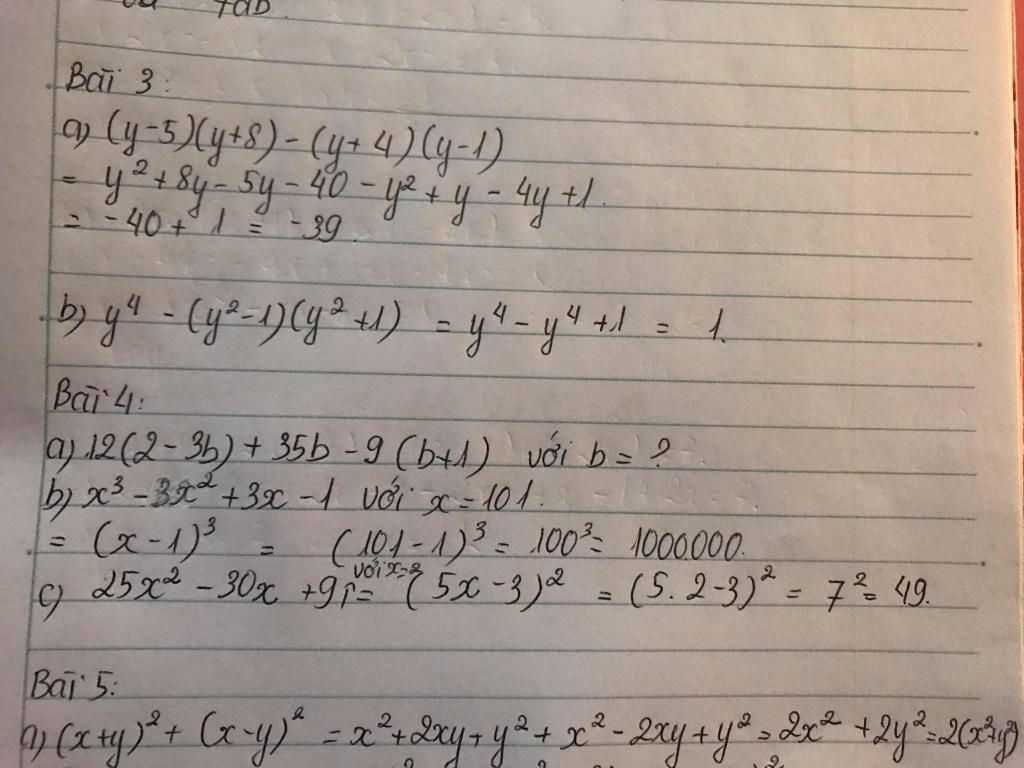 +ab.
Bài 3:
a) (y-5)(y+8) - (y+4)(y-1)
= y² + 8y - 5y - 40 - y² + y - 4y + 1.
= -40 + 1 = -39.
b) y⁴ - (y²-1)(y²+1) = y⁴ - y⁴ + 1 = 1.
Bài 4:
a) 12(2-3b) + 35b - 9(b+1) với b = ?
b) x³ - 3x² + 3x - 1 với x = 101.
= (x-1)³ = (101-1)³ = 100³ = 1000000.
với x=2
c) 25x² - 30x + 9 = (5x-3)² = (5.2-3)² = 7² = 49.
Bài 5:
a) (x+y)² + (x-y)² = x² + 2xy + y² + x² - 2xy + y² = 2x² + 2y² = 2(x²+y²)